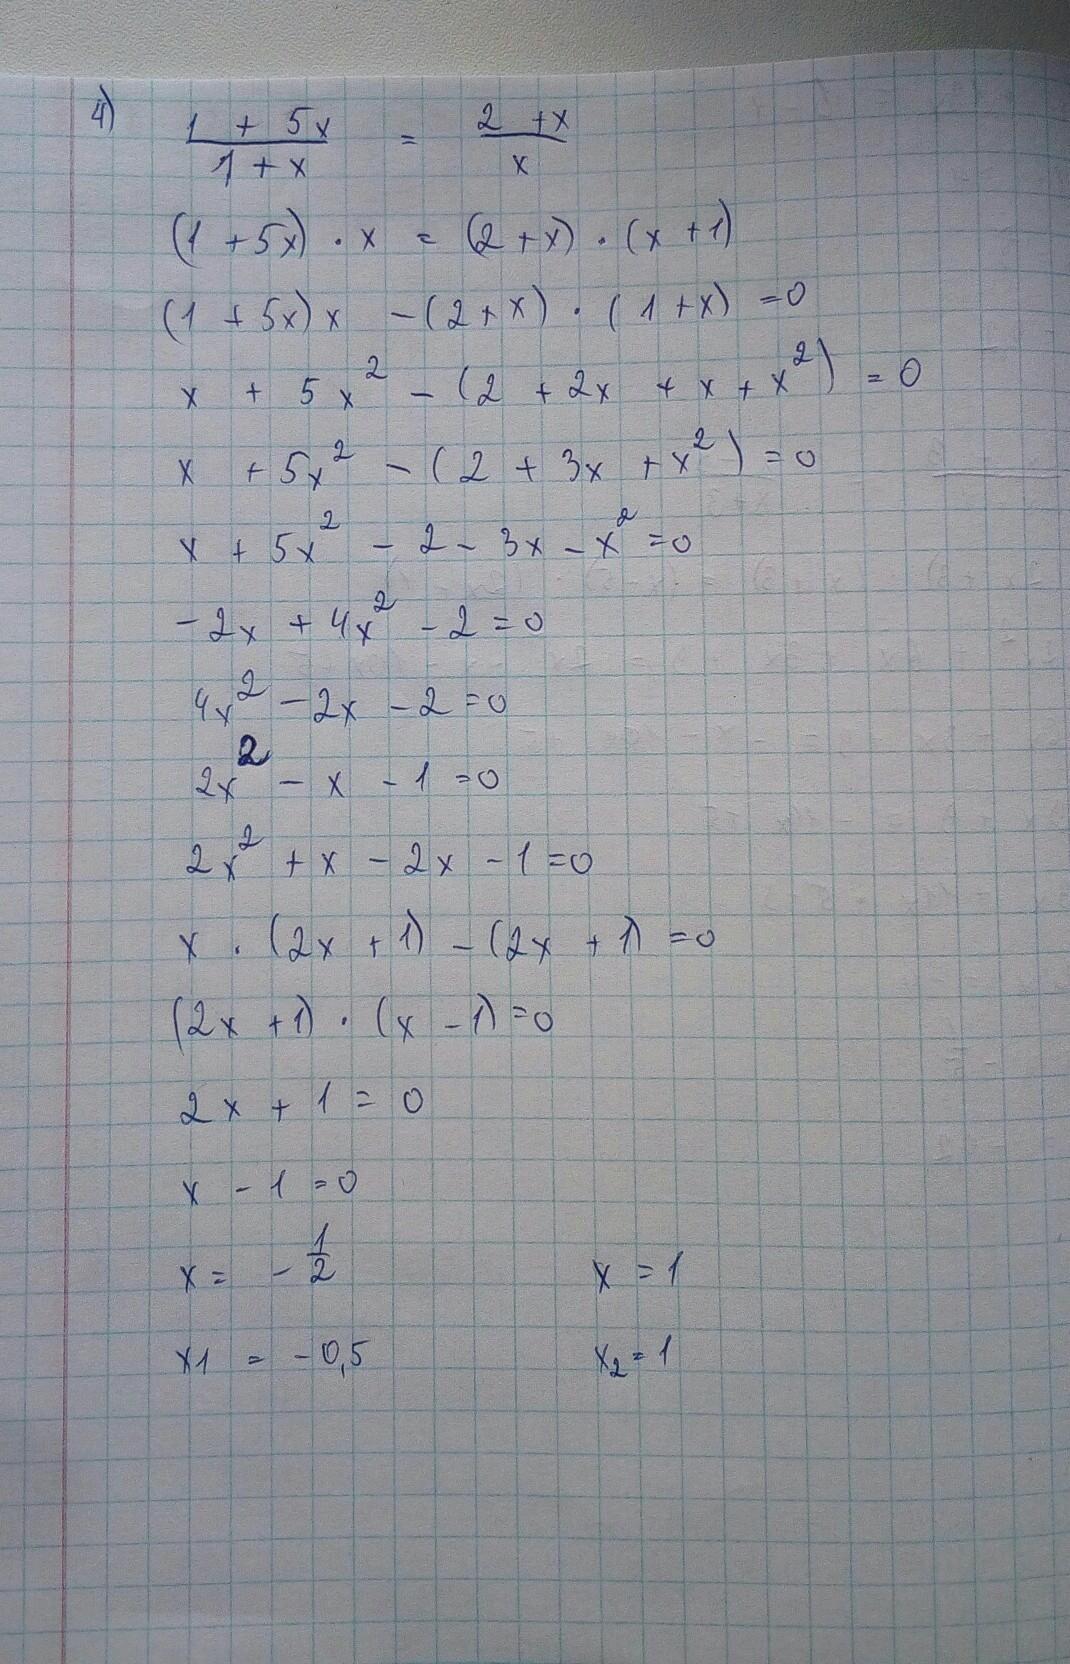 4) 1 + 5x / 1 + x = 2 + x / x
(1 + 5x) · x = (2 + x) · (x + 1)
(1 + 5x) x - (2 + x) · (1 + x) = 0
x + 5x² - (2 + 2x + x + x²) = 0
x + 5x² - (2 + 3x + x²) = 0
x + 5x² - 2 - 3x - x² = 0
-2x + 4x² - 2 = 0
4x² - 2x - 2 = 0
2x² - x - 1 = 0
2x² + x - 2x - 1 = 0
x · (2x + 1) - (2x + 1) = 0
(2x + 1) · (x - 1) = 0
2x + 1 = 0
x - 1 = 0
x = - 1/2 x = 1
x1 = -0,5 x₂ = 1